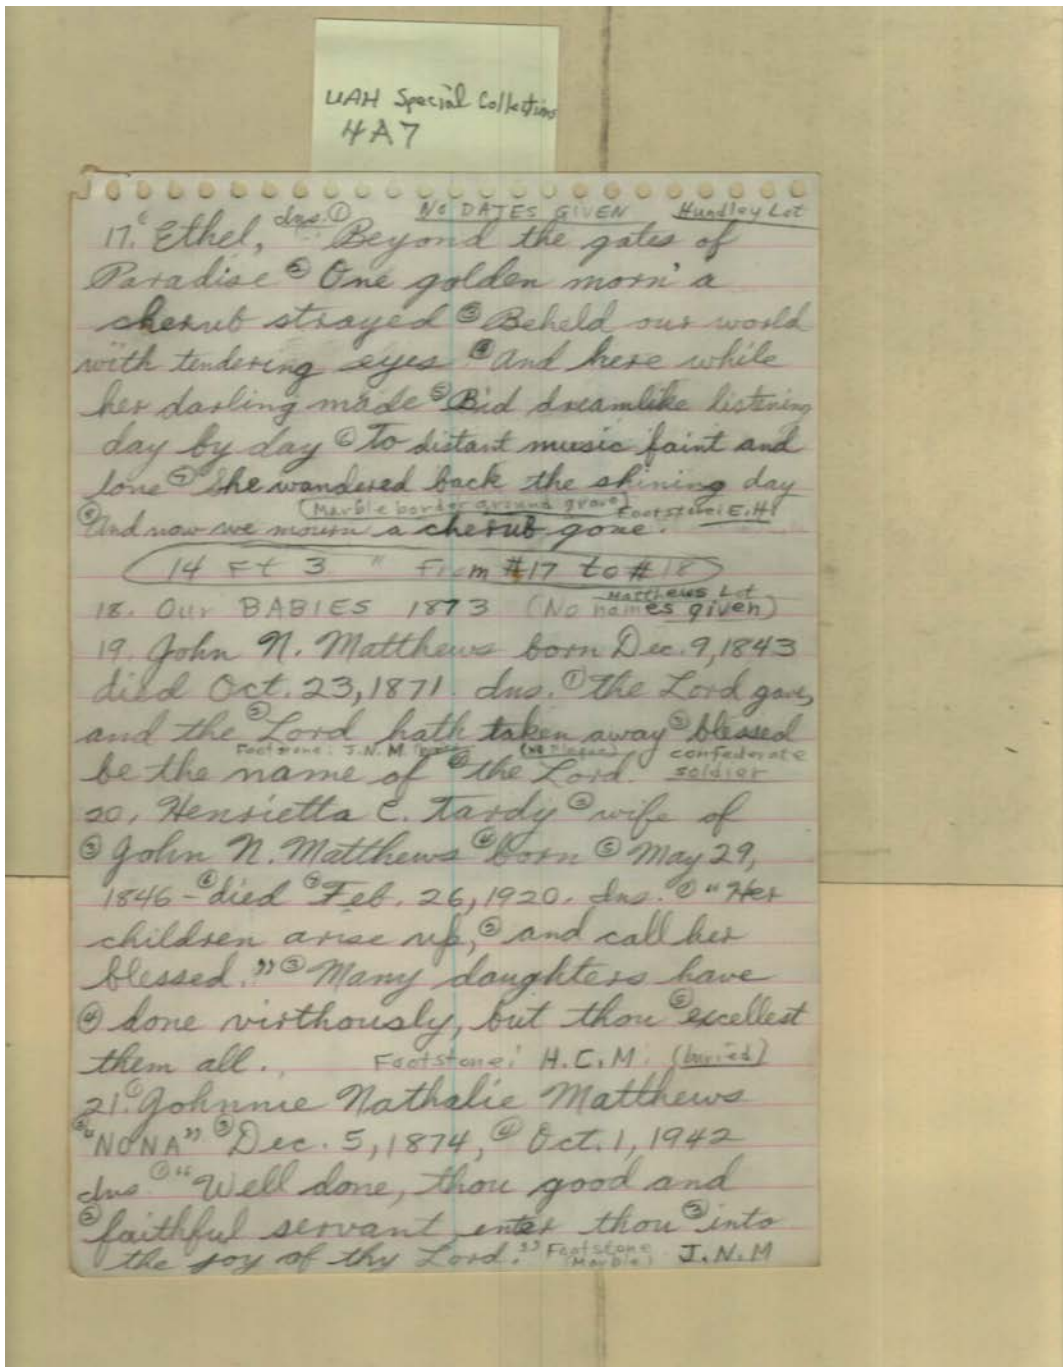 UAH Special Collections
4A7
NO DATES GIVEN Hundley Lot
17. Ethel, Ins. ① Beyond the gates of
Paradise ② One golden morn' a
cherub strayed ③ Beheld our world
with tendering eyes ④ And here while
her darling made ⑤ Bid dreamlike listening
day by day ⑥ To distant music faint and
lone ⑦ She wandered back the shining day
(Marble border around grave) Footstone: E.H.
⑧ And now we mourn a cherub gone.
14 Ft 3 " From #17 to #18
Matthews Lot
18. Our BABIES 1873 (No names given)
19. John N. Matthews born Dec. 9, 1843
died Oct. 23, 1871. Ins. ① the Lord gave,
and the ② Lord hath taken away ③ blessed
Footstone: J.N.M (No Plaque) confederate
be the name of ④ the Lord. soldier
20. Henrietta C. Tardy ② wife of
③ John N. Matthews ④ born ⑤ May 29,
1846 - ⑥ died ⑦ Feb. 26, 1920. Ins. ① "Her
children arise up, ② and call her
blessed." ③ Many daughters have
④ done virthously, but thou ⑤ excellest
them all. Footstone: H.C.M. (buried)
21. ① Johnnie Nathalie Matthews
② "NONA" ③ Dec. 5, 1874, ④ Oct. 1, 1942
Ins ① "Well done, thou good and
② faithful servant enter thou ③ into
the joy of thy Lord." Footstone (Marble) J.N.M